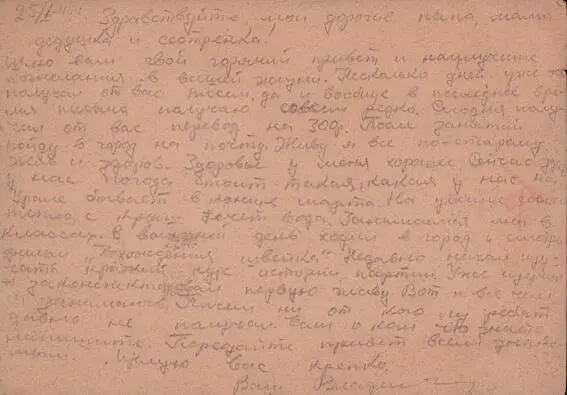 25/I Здравствуйте, мои дорогие папа, мама
дедушка и сестренка.
Шлю вам свой горячий привет и наилучшие
пожелания в вашей жизни. Несколько дней уже не
получал от вас писем, да и вообще в последнее вре-
мя письма получаю совсем редко. Сегодня полу-
чил от вас перевод на 300р. После занятий
пойду в город на почту. Живу я все по-старому
жив и здоров. Здоровье у меня хорошее. Сейчас
у нас погода стоит такая, какая у нас на
Урале бывает в конце марта. На улице
с крыш течет вода. Занимаемся мы в
классах. В выходной день ходил в город и смотр
фильм "Похождения Швейка". Недавно начал изу-
чать краткий курс истории партии. Уже изучил
и законспектировал первую главу. Вот и все чем
я занимаюсь. Писем ни от кого из ребят
давно не получал. Если о ком что знаете
напишите. Передайте привет всем знако-
мым. Целую вас крепко.
Ваш